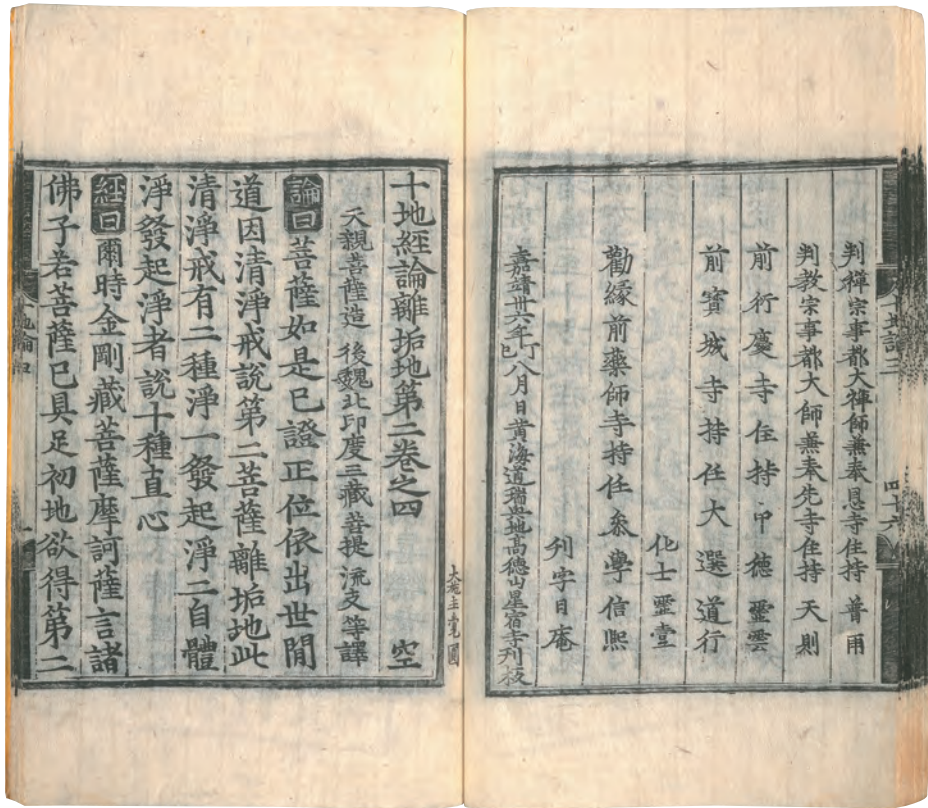 判禪宗事都大禪師兼奉恩寺住持 普雨
判教宗事都大師兼奉先寺住持 天則
前行慶寺住持中德靈雲
前寶城寺持任大選道行
化士靈堂
勸緣前藥師寺持任叅學信熙
刋字日庵
嘉靖丗六年丁巳八月日黄海道瑞興地高德山星宿寺刋板
十地經論離垢地第二卷之四 空
天親菩薩造 後魏北印度三藏菩提流支等譯
論曰菩薩如是已證正位依出世閒
道因清淨戒說第二菩薩離垢地此
清淨戒有二種淨一發起淨二自體
淨發起淨者說十種直心
經曰爾時金剛藏菩薩摩訶薩言諸
佛子若菩薩已具足初地欲得第二
十地論四